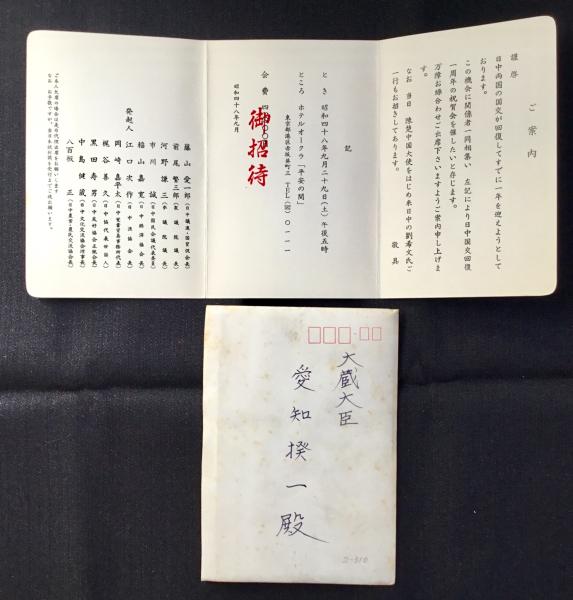 ご案内
謹啓
日中両国の国交が回復してすでに一年を迎えようとして
おります。
この機会に関係者一同相集い 左記により日中国交回復
一周年の祝賀会を催したいと存じます。
万障お繰合わせご出席下さいますようご案内申し上げま
す。
なお 当日 陳楚中国大使をはじめ来日中の劉希文氏ご
一行もお招きしてあります。
敬具
記
とき 昭和四十八年九月二十九日(土)午後五時
ところ ホテルオークラ「平安の間」
東京都港区赤坂葵町三 TEL(582)〇一一一
会費 四
御招待
昭和四十八年九月
発起人
藤山愛一郎
前尾繁三郎(衆議院議長)
河野謙三(参議院議長)
市川誠
稲山嘉寛
江口次作
岡崎嘉平太
梶谷善久
黒田寿男
中島健蔵
八百板正
ご本人欠席の場合は是非代理出席をお願いします
なお お手数ですが、当日本状封筒を受付までご提出願います。
大蔵大臣
愛知揆一殿
2-310